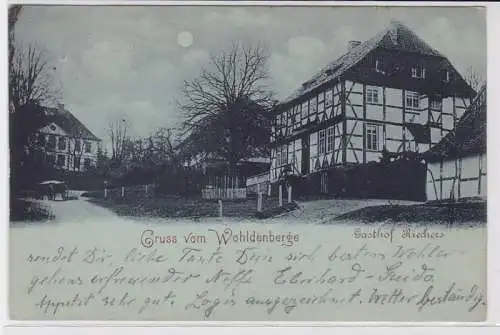 Gruss vom Wohldenberge
Gasthof Riechers
sendet Dir, liebe Tante Dein sich besten Wohler-
gehens erfreuender Neffe Eberhard-Guido
Appetit sehr gut. Logis ausgezeichnet. Wetter beständig.